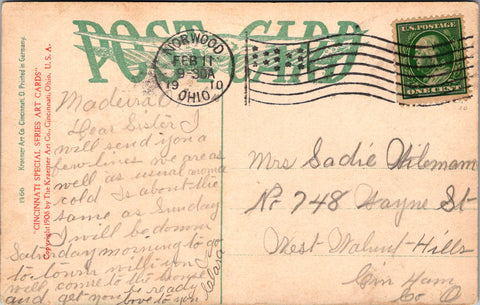 POST CARD
NORWOOD
FEB 11
9-30A
1910
OHIO
U.S. POSTAGE
ONE CENT
1966 Kraemer Art Co. Cincinnati, O. Printed in Germany.
"CINCINNATI SPECIAL SERIES ART CARDS"
Copyright 1908 by The Kraemer Art Co., Cincinnati, Ohio, U. S. A.
Madeira O
Dear Sister I
will send you a
few lines we are as
well as usual
cold Is about the
same as Sunday
I will be down
Saturday morning to go
to town will you
will come to the house
and get you be ready
love to you
Clara
Mrs Sadie
No 748 Wayne St
West Walnut Hills
Cin Ham
Co O